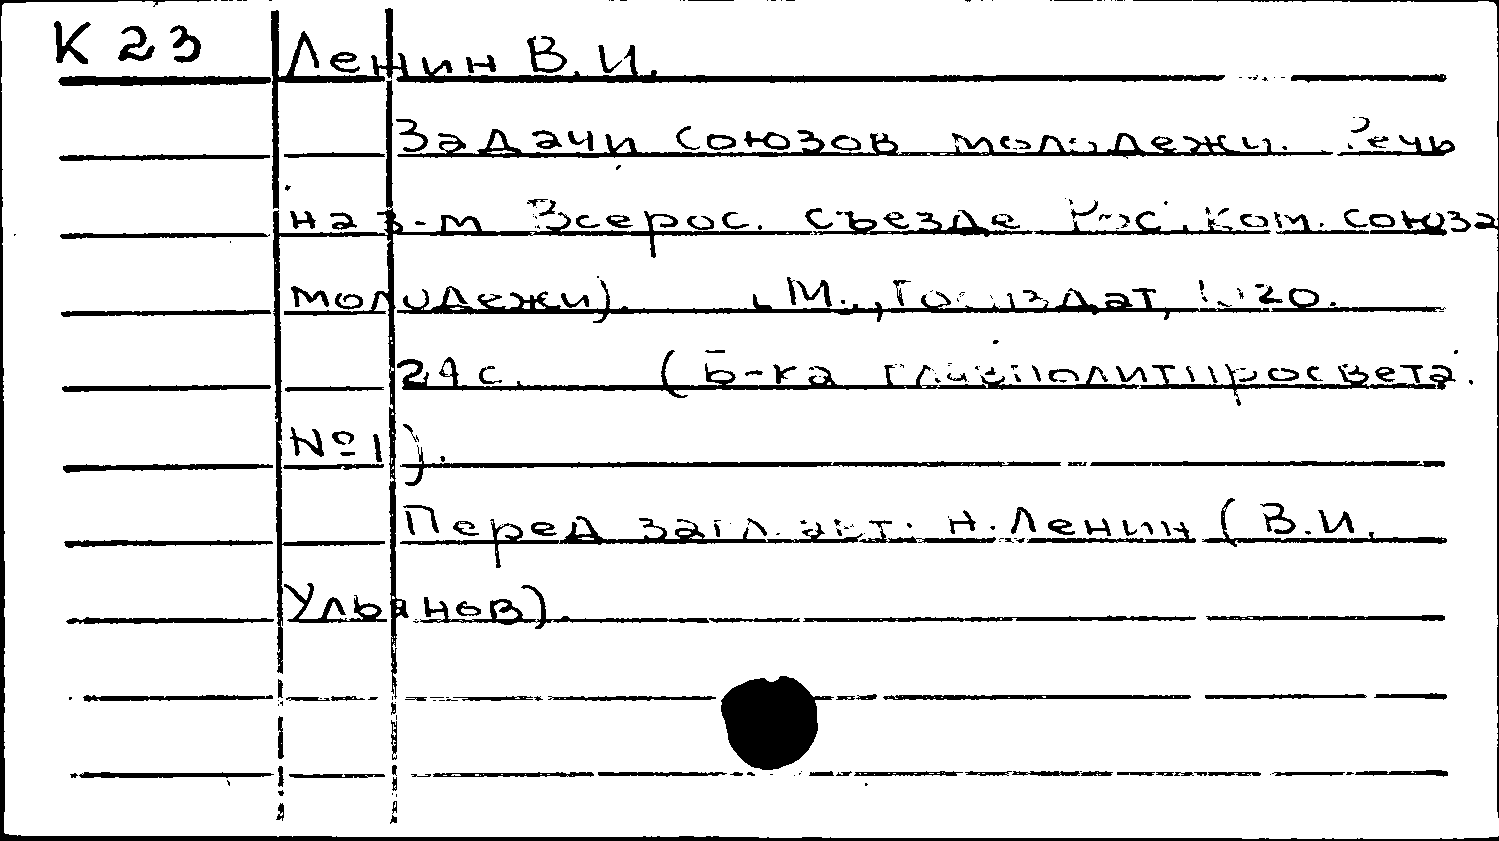 К 23
Ленин В. И.
Задачи союзов молодежи. Речь
на 3-м Всерос. съезде Рос. Ком. союза
молодежи). М., Госиздат, 1920.
24 с. (Б-ка главполитпросвета.
№ 1).
Перед загл. авт. Н. Ленин (В. И.
Ульянов).